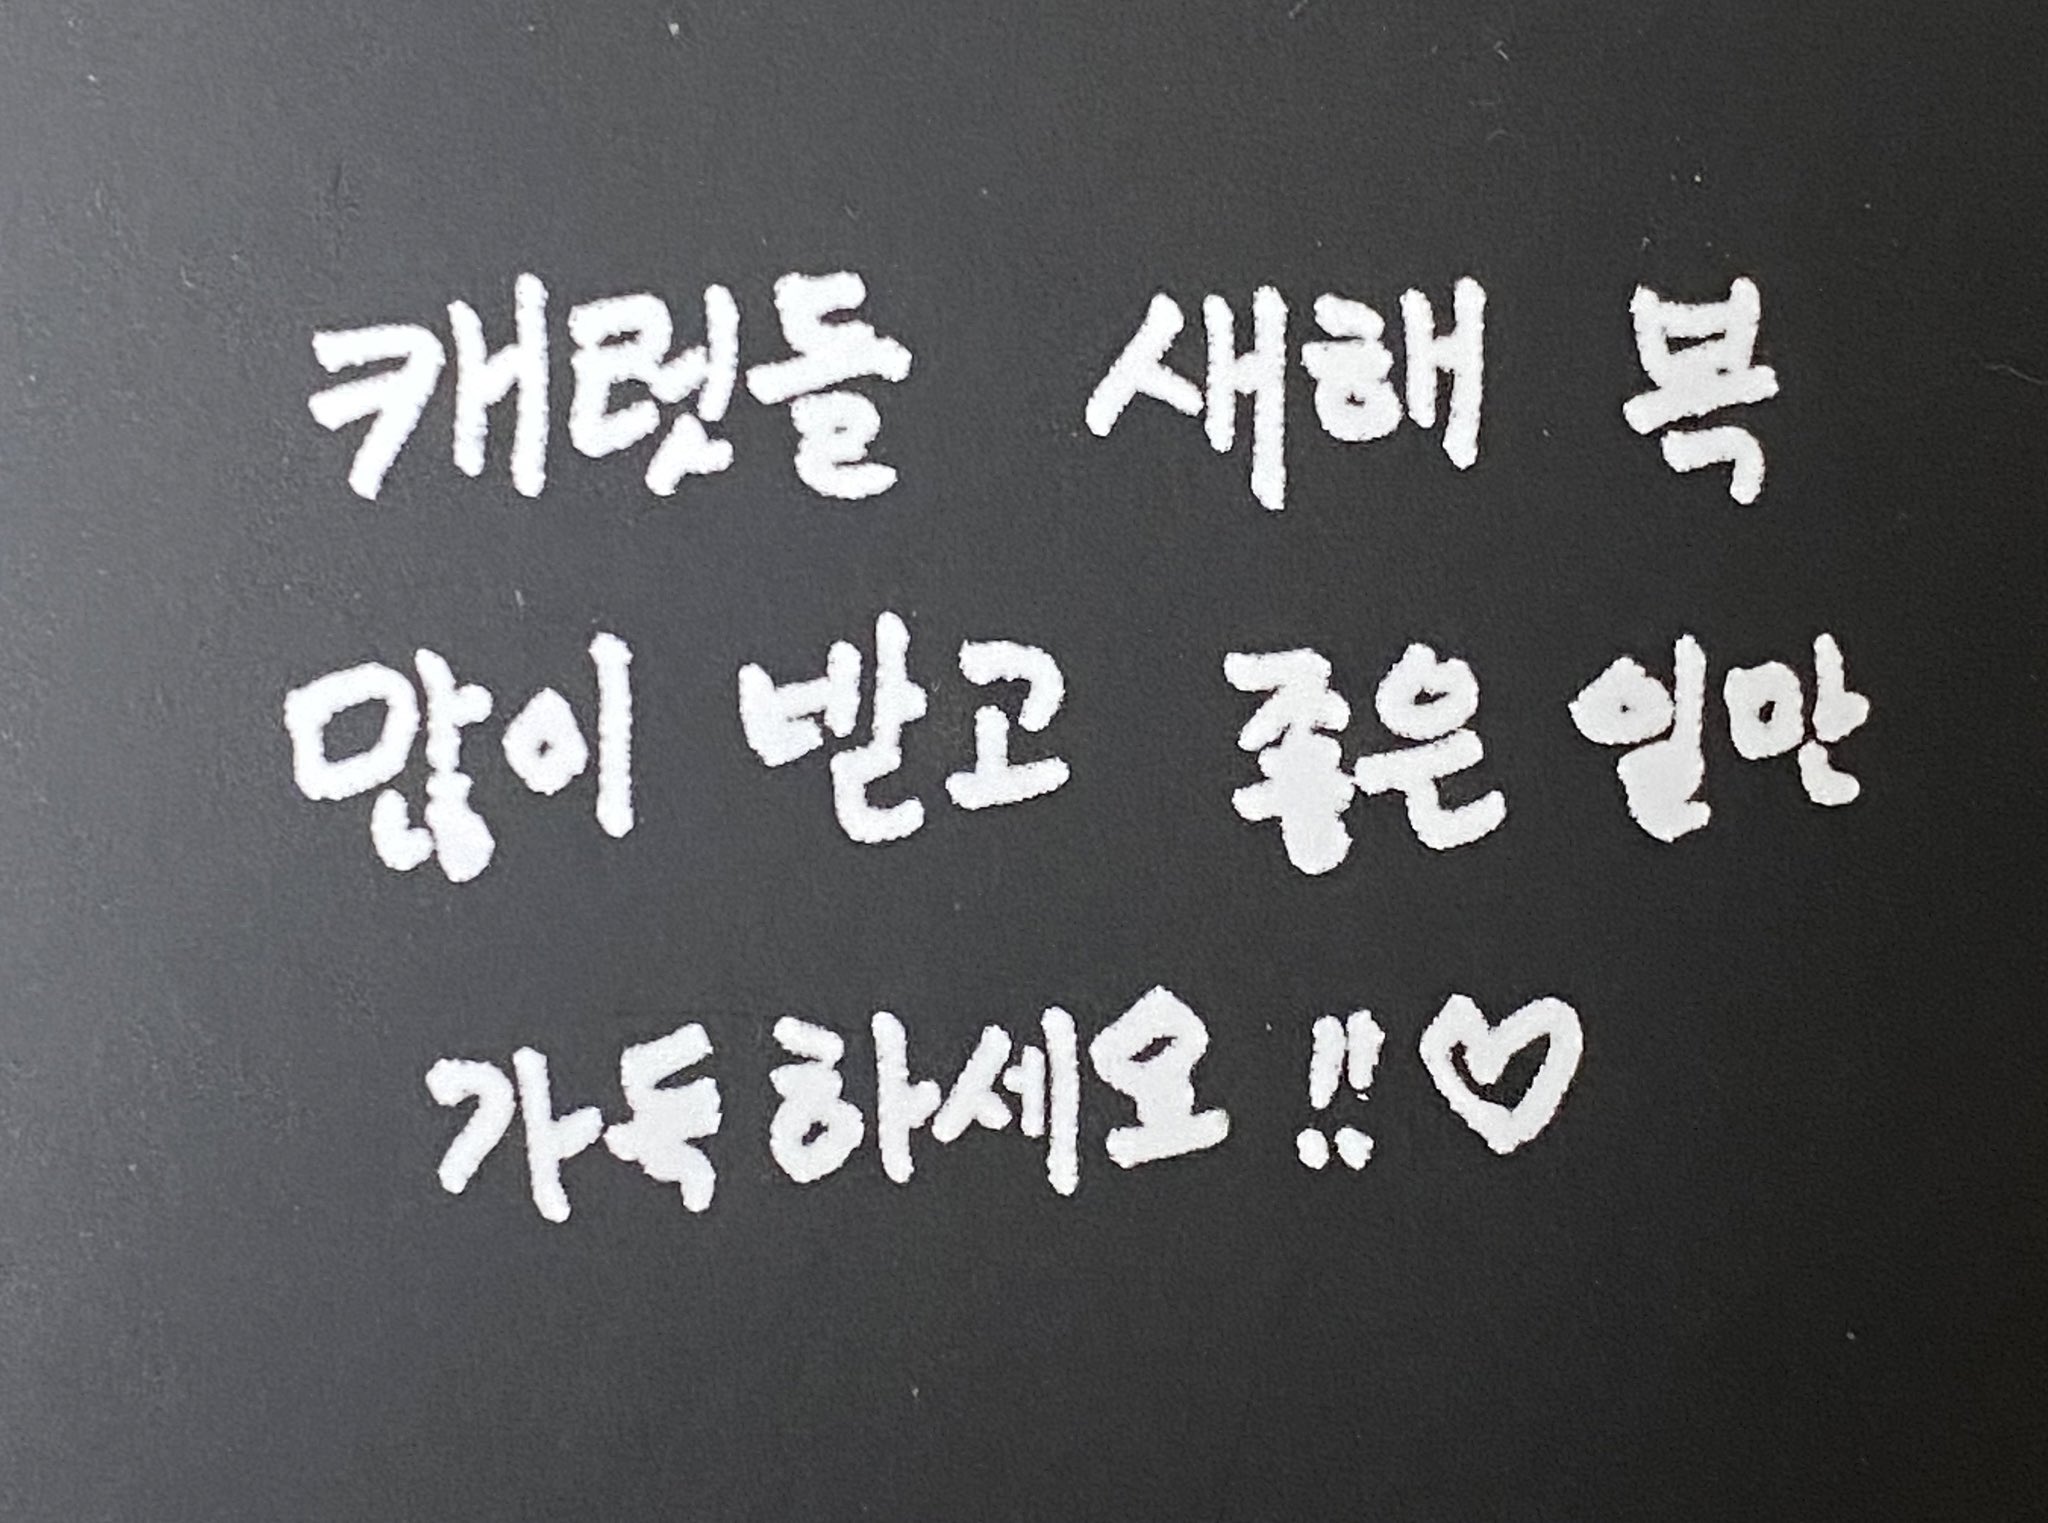 캐럿들 새해 복
많이 받고 좋은 일만
가득하세요!!♡